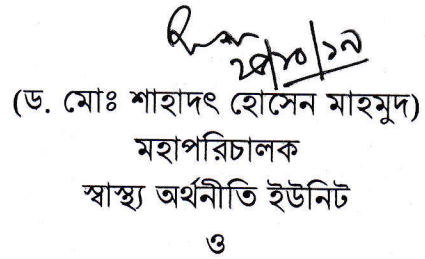 (ড. মোঃ শাহাদৎ হোসেন মাহমুদ)
মহাপরিচালক
স্বাস্থ্য অর্থনীতি ইউনিট
ও